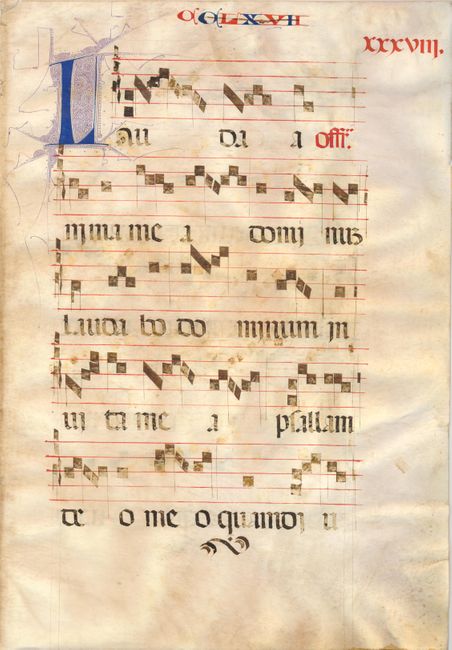 CCLXVII
xxxviij.
Lau da a offi.
nima me a domi nuz
lauda bo do minum in
ui ta me a psallam
de o me o quamdi u